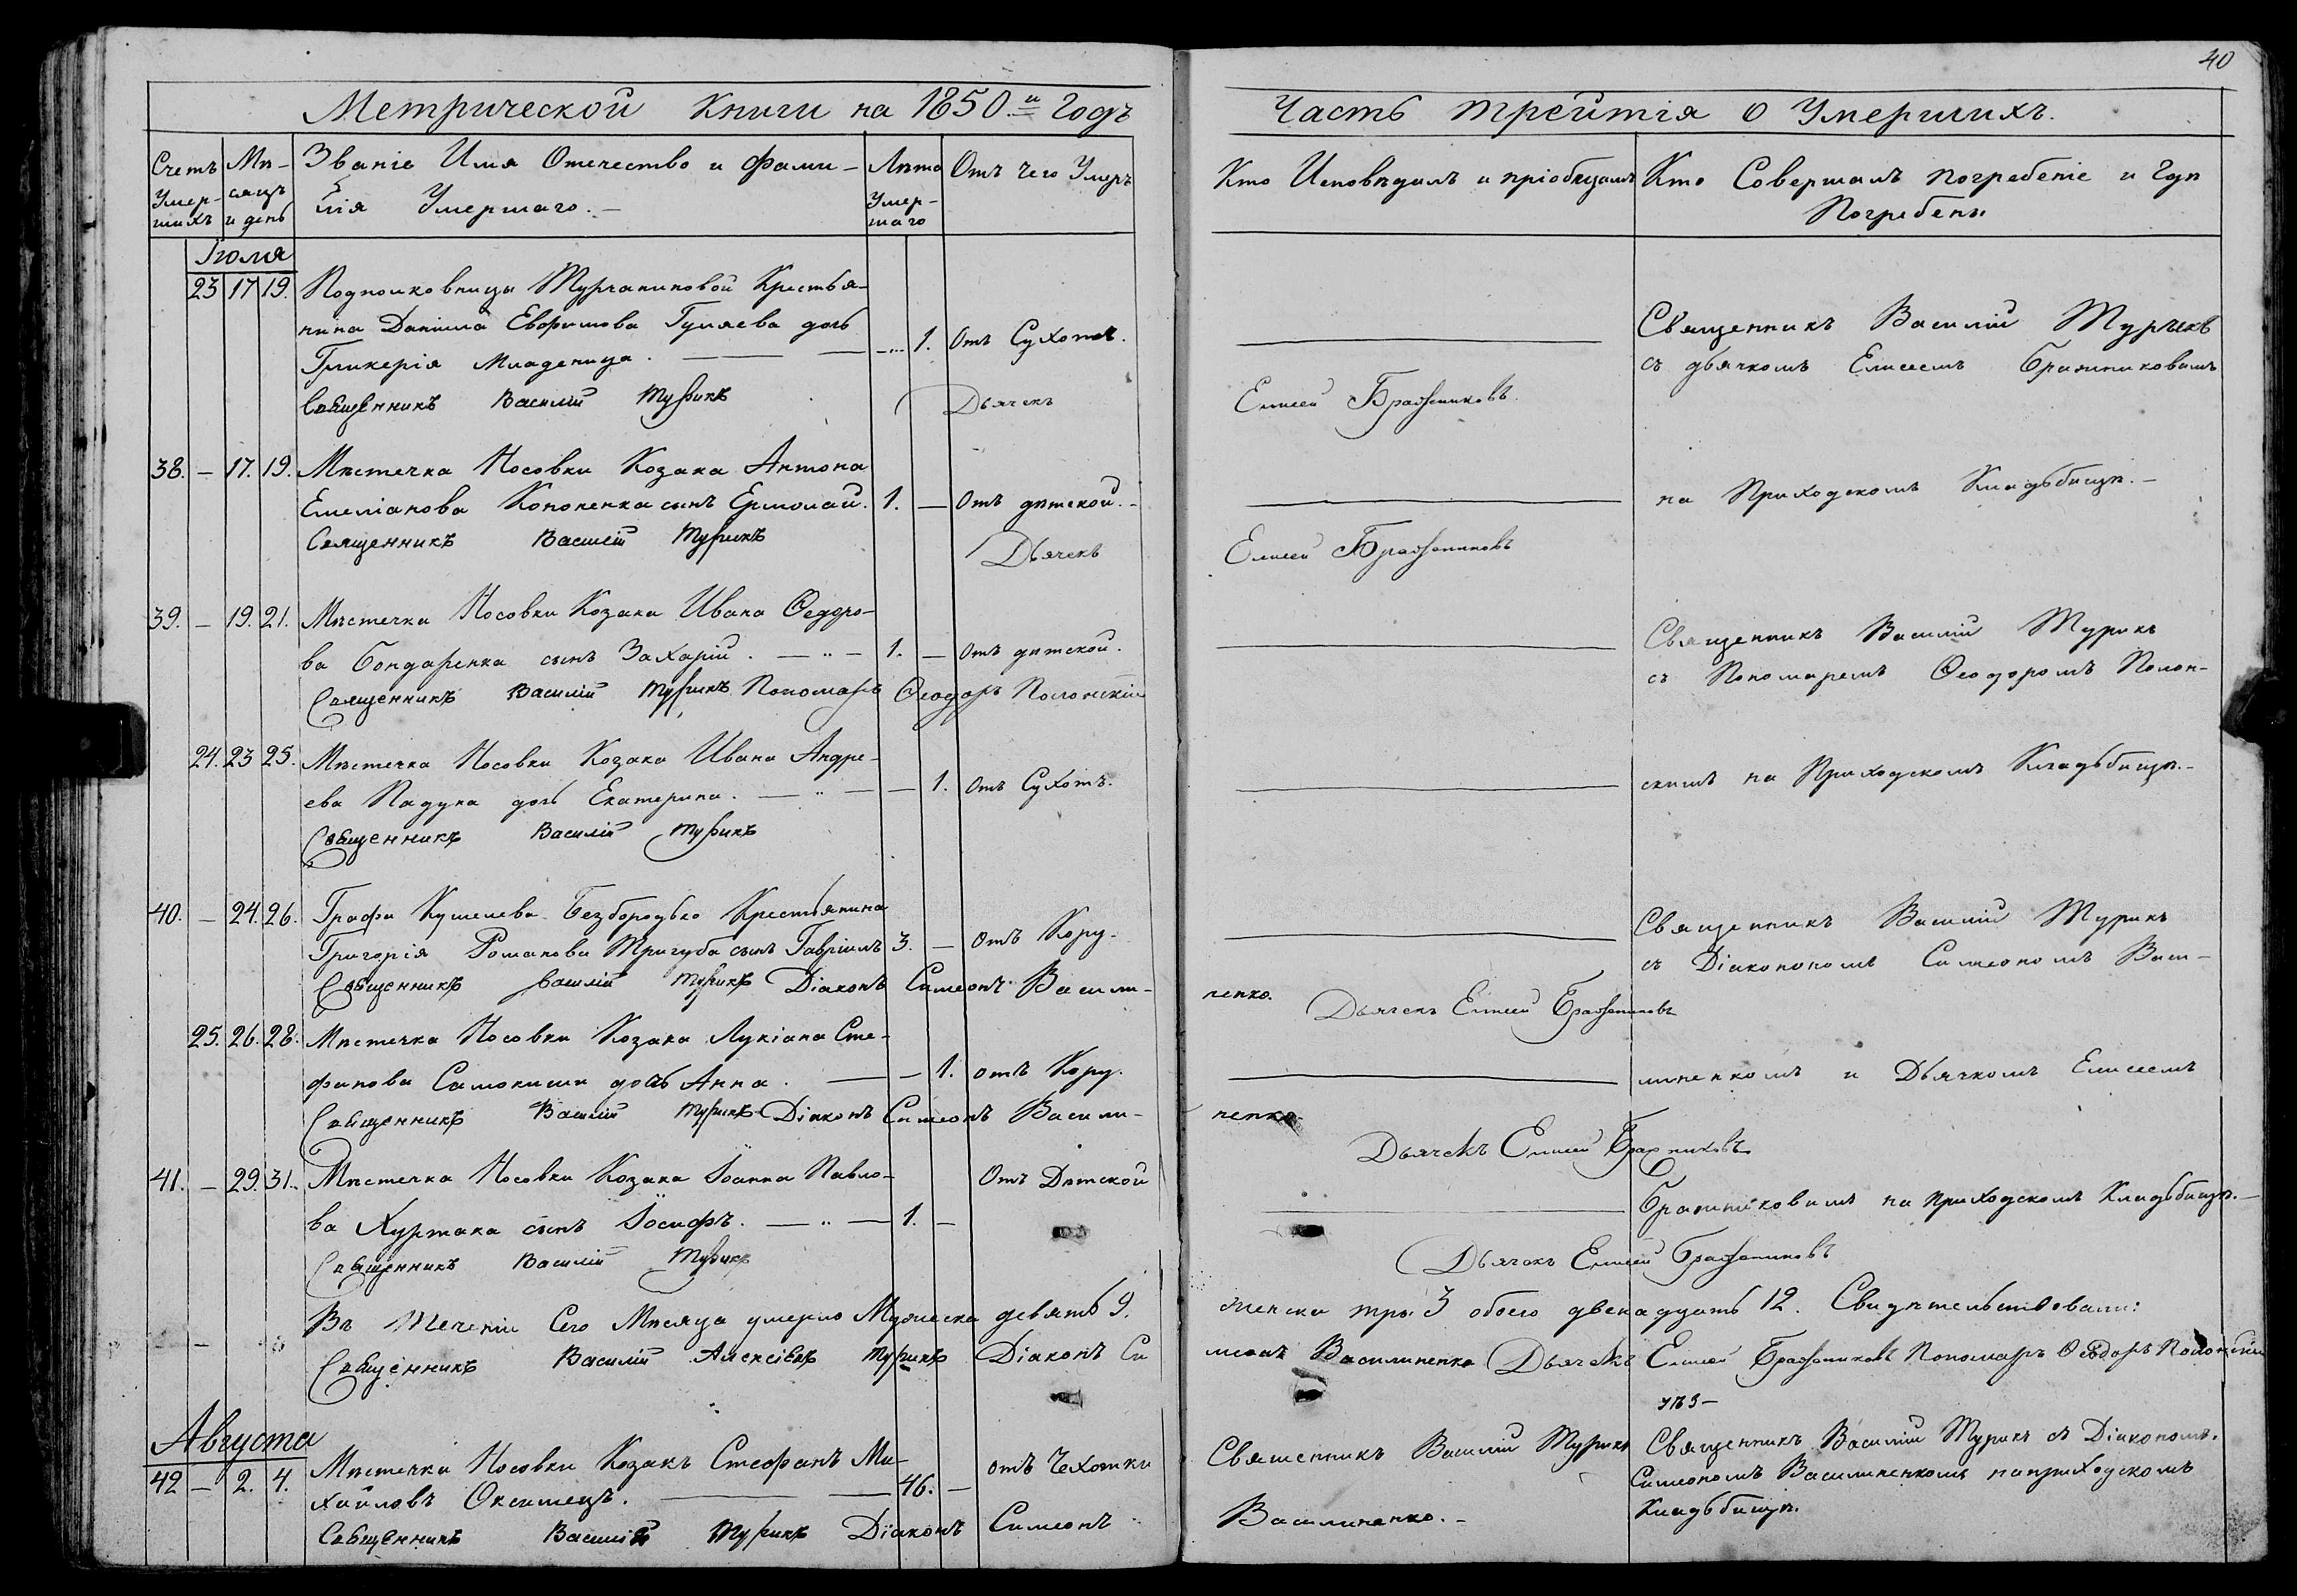 40
Метрической Книги на 1850-й Годъ
Счетъ Умер-шихъ
Мѣ-сяцъ и день
Званіе Имя Отечество и фами-
лія Умершаго. —
Лѣта Умер-шаго
Отъ чего Умеръ
Іюля
23 17 19. Подполковницы Турчаниновой Крестья-
нина Даніила Евфимова Гуляева дочь
Гликерія Младеница. — 1. Отъ Сухотъ.
Священникъ Василій Турикъ Дьячекъ
38. — 17. 19. Мѣстечка Носовки Козака Антона
Емеліанова Кононенка сынъ Ермолай. 1. — Отъ дѣтской. -
Священникъ Василій Турикъ Дьячекъ
39. — 19. 21. Мѣстечка Носовки Козака Ивана Ѳедоро-
ва Бондаренка сынъ Захарій. — 1. — Отъ дѣтской.
Священникъ Василій Турикъ Пономарь Ѳеодоръ Полонскій
24. 23 25. Мѣстечка Носовки Козака Ивана Андре-
ева Падуна дочь Екатерина. — — 1. Отъ Сухотъ.
Священникъ Василій Турикъ
40. — 24. 26. Графа Кушелева-Безбородько Крестьянина
Григорія Романова Тригуба сынъ Гавріилъ 3. — Отъ Кору.
Священникъ Василій Турикъ Діаконъ Симеонъ Васили-
25. 26. 28. Мѣстечка Носовки Козака Лукіана Сте-
фанова Самокиши дочь Анна. — — 1. отъ Кору.
Священникъ Василій Турикъ Діаконъ Симеонъ Васили-
41. — 29. 31. Мѣстечка Носовки Козака Іоанна Павло- Отъ Дѣтской
ва Хуртака сынъ Іосифъ. — 1. —
Священникъ Василій Турикъ
Въ Теченіи Сего Мѣсяца умерло Мужеска девять 9.
Священникъ Василій Алексіевъ Турикъ Діаконъ Си
Августа
42 — 2. 4. Мѣстечка Носовки Козакъ Стефанъ Ми-
хайловъ Окситецъ. — 46. — отъ Чехотки
Священникъ Василій Турикъ Діаконъ Симеонъ
Часть третітія о Умершихъ.
Кто Исповѣдалъ и пріобщалъ
Кто Совершалъ погребеніе и Гдѣ
Погребены
Священникъ Василій Турикъ
съ дьячкомъ Елисеемъ Бражниковымъ
Елисей Бражниковъ.
на Приходскомъ Кладьбищѣ. —
Елисей Бражниковъ
Священникъ Василій Турикъ
съ Пономаремъ Ѳеодоромъ Полон-
скимъ на Приходскомъ Кладьбищѣ. —
Священникъ Василій Турикъ
съ Діакопономъ Симеономъ Васи-
ченко. Дьячекъ Елисей Бражниковъ
линенкомъ и Дьячкомъ Елисеемъ
ченко.
Дьячекъ Елисей Бражниковъ
Бражниковымъ на приходскомъ Кладьбищѣ. —
Дьячокъ Елисей Бражниковъ
женска три 3 обоего двенадцать 12. Свидѣтельствовали:
меонъ Василиненко Дьячекъ Елисей Бражниковъ Пономарь Ѳеодоръ Полонскій
Священникъ Василій Турикъ Священникъ Василій Турикъ съ Діакономъ
Симеономъ Василиненкомъ на приходскомъ
Василиненко. — Кладьбищѣ.